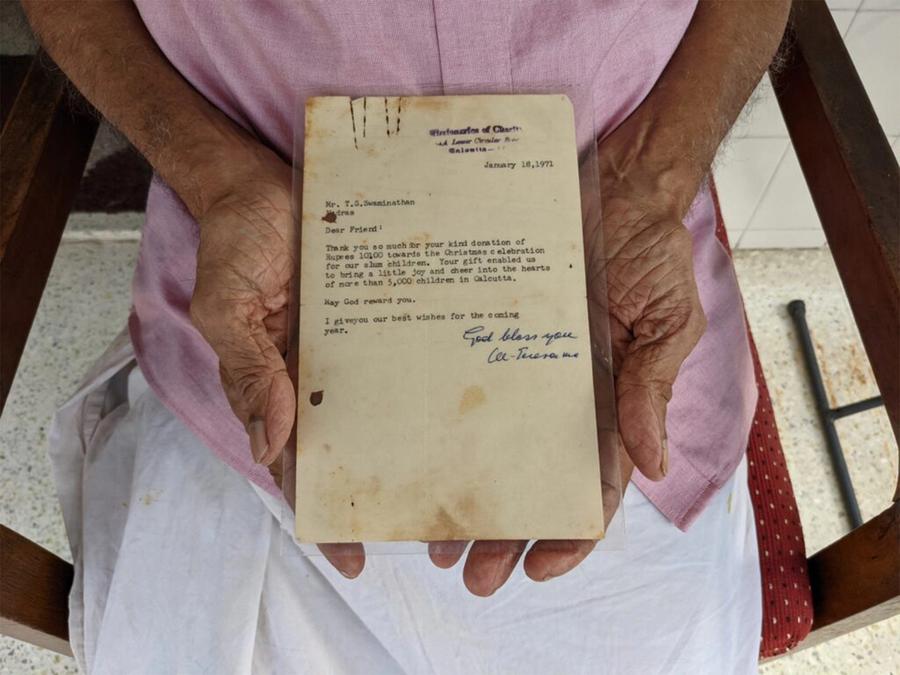 Missionaries of Charity
Lower Circular
Calcutta—
January 18,1971
Mr. T.G.Swaminathan
Madras
Dear Friend!
Thank you so much for your kind donation of
Rupees 10100 towards the Christmas celebration
for our slum children. Your gift enabled us
to bring a little joy and cheer into the hearts
of more than 5,000 children in Calcutta.
May God reward you.
I giveyou our best wishes for the coming
year.
God bless you
Teresa mc